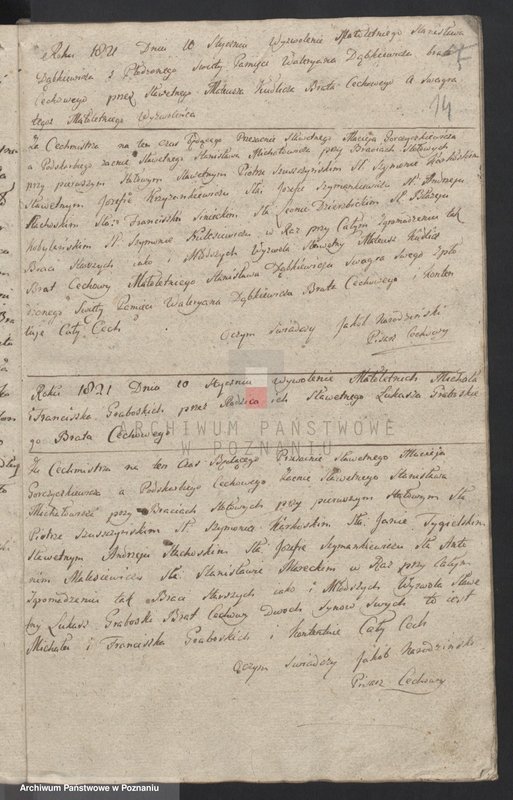 Roku 1821 Dnia 10 Stycznia Wyzwolenie Małoletniego Stanisława
Dąbkiewicza z Płodzonego Swięty Pamięci Waleryana Dąbkiewicza brata
Cechowego przez Sławetnego Mateusza Kudlicza Brata Cechowego a Swagra
tegoż Małoletniego Wyzwolenca
14
Za Cechmistrza na ten Czas będącego Przezacnie Sławetnego Macieja Gorczyczkiewicza
a Podskarbiego zacnie Sławetnego Stanisława Michałowicza przy Braciach Stołowych
przy pierwszym Stołowym Sławetnym Piotrze Szuszczyńskim Sł. Szymonie Karskim
Sławetnym Józefie Krzyżonkiewiczu Sła. Józefie Szymankiewiczu Sł. Andrzeju
Stachowskim Sła. Franciszku Simickim Sła. Leonie Dzierzbickim Sł. Błażeju
Kobylańskim Sł. Szymonie w Raz przy Całym Zgromadzeniu tak
Braci Starszych jako i Młodszych Wyzwala Sławetny Mateusz Kudlicz
Brat Cechowy Małoletniego Stanisława Dąbkiewicza Swagra Swego Zpło
dzonego Swięty Pamięci Waleryana Dąbkiewicza Brata Cechowego i konten
tuje Cały Cech
Oczym Swiadczy Jakób Narodzinski
Pisarz Cechowy
Roku 1821 Dnia 10 Stycznia Wyzwolenie Małoletnich Michała
i Franciszka Graboskich przez Rodzica ich Sławetnego Łukasza Graboskie
go Brata Cechowego
ARCHIWUM PAŃSTWOWE
W POZNANIU
Za Cechmistrza na ten Czas Będącego Przezacnie Sławetnego Macieja
Gorczyczkiewicza a Podskarbiego Cechowego Zacnie Sławetnego Stanisława
Michałowicza przy Braciach Stołowych przy pierwszym Stołowym Sła.
Piotrze Szuszczyńskim Sł. Szymonie Karskim Sła. Janie Tygielskim
Sławetnym Andrzeju Stachoskim Sła. Józefie Szymankiewiczu Sła. Anto
nim Malesiewiczu Sła. Stanisławie Mareckim w Raz przy Całym
Zgromadzeniu tak Braci Starszych jako i Młodszych Wyzwala Sławe
tny Łukasz Graboski Brat Cechowy Dwoch Synow Swych to iest
Michała i Franciszka Graboskich i Kontentuie Cały Cech
Oczym Swiadczy Jakób Narodzinski
Pisarz Cechowy
Archiwum Państwowe w Poznaniu